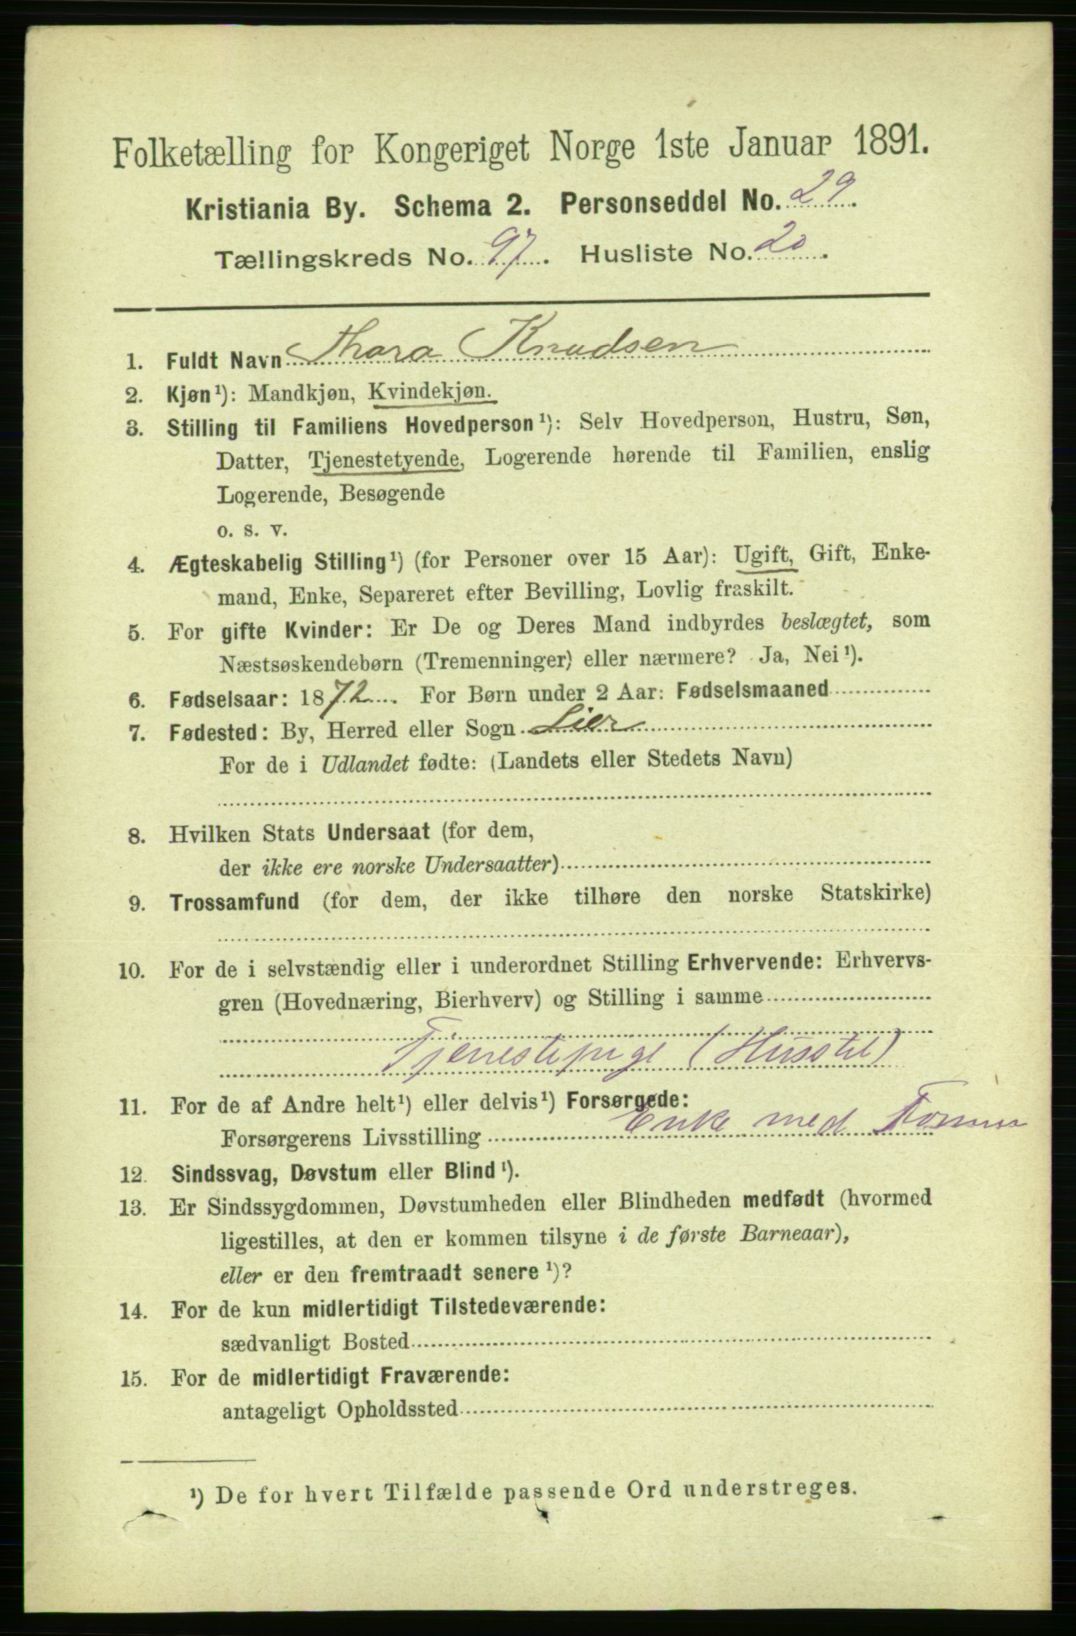 Folketælling for Kongeriget Norge 1ste Januar 1891.
Kristiania By. Schema 2. Personseddel No. 29.
Tællingskreds No. 97. Husliste No. 20.
1. Fuldt Navn Thora Knudsen
2. Kjøn¹): Mandkjøn, Kvindekjøn.
3. Stilling til Familiens Hovedperson¹): Selv Hovedperson, Hustru, Søn,
Datter, Tjenestetyende, Logerende hørende til Familien, enslig
Logerende, Besøgende
o. s. v.
4. Ægteskabelig Stilling¹) (for Personer over 15 Aar): Ugift, Gift, Enke-
mand, Enke, Separeret efter Bevilling, Lovlig fraskilt.
5. For gifte Kvinder: Er De og Deres Mand indbyrdes beslægtet, som
Næstsøskendebørn (Tremenninger) eller nærmere? Ja, Nei¹).
6. Fødselsaar: 1872. For Børn under 2 Aar: Fødselsmaaned
7. Fødested: By, Herred eller Sogn Lier
For de i Udlandet fødte: (Landets eller Stedets Navn)
8. Hvilken Stats Undersaat (for dem,
der ikke ere norske Undersaatter)
9. Trossamfund (for dem, der ikke tilhøre den norske Statskirke)
10. For de i selvstændig eller i underordnet Stilling Erhvervende: Erhvervs-
gren (Hovednæring, Bierhverv) og Stilling i samme
Tjenestepige (Husstel)
11. For de af Andre helt¹) eller delvis¹) Forsørgede:
Forsørgerens Livsstilling Enke med
12. Sindssvag, Døvstum eller Blind¹).
13. Er Sindssygdommen, Døvstumheden eller Blindheden medfødt (hvormed
ligestilles, at den er kommen tilsyne i de første Barneaar),
eller er den fremtraadt senere¹)?
14. For de kun midlertidigt Tilstedeværende:
sædvanligt Bosted
15. For de midlertidigt Fraværende:
antageligt Opholdssted
¹) De for hvert Tilfælde passende Ord understreges.